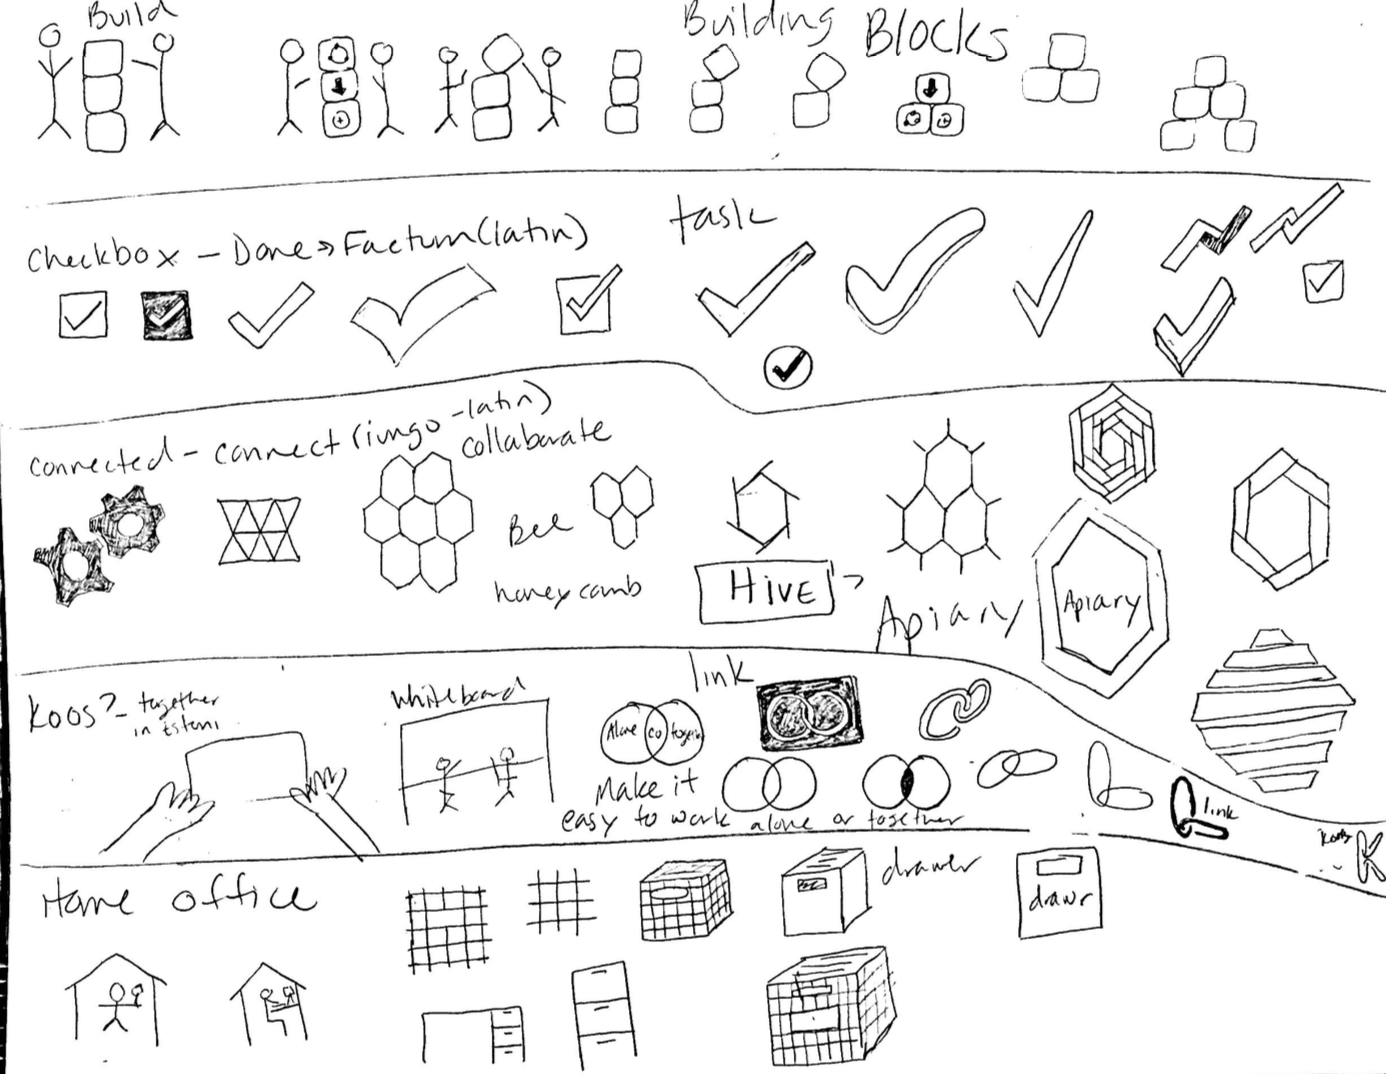 Build
Building Blocks
task
Checkbox - Done => Factum (latin)
connected - connect (iungo - latin)
collaborate
Bee
honeycomb
HIVE ?
Apiary
Apiary
Koos? - together
in Estoni
Whiteboard
link
Alone
co
together
Make it
easy to work alone or together
link
Koos
K
Home office
drawer
drawr